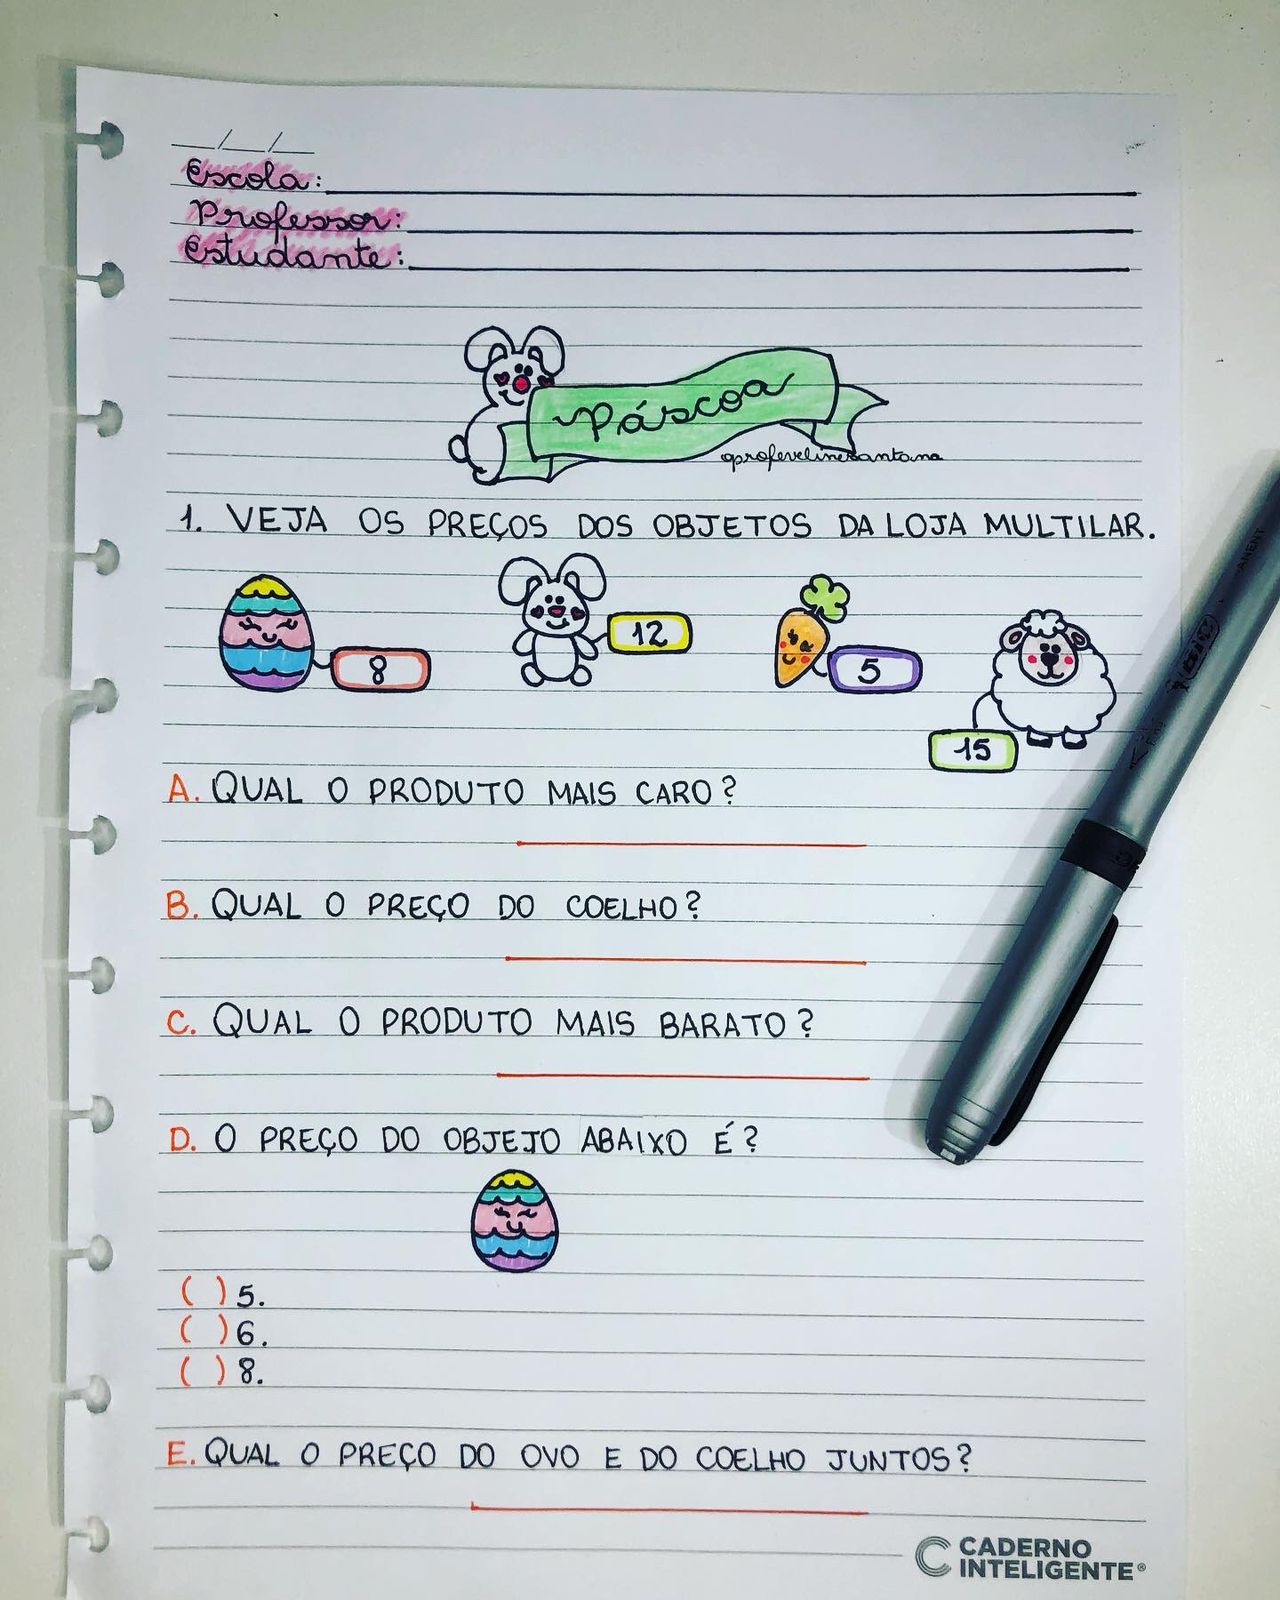 __/__/__
Escola:
Professor:
Estudante:
Páscoa
@profevelinesantana
1. VEJA OS PREÇOS DOS OBJETOS DA LOJA MULTILAR.
8
12
5
15
A. QUAL O PRODUTO MAIS CARO?
B. QUAL O PREÇO DO COELHO?
C. QUAL O PRODUTO MAIS BARATO?
D. O PREÇO DO OBJETO ABAIXO É?
( ) 5.
( ) 6.
( ) 8.
E. QUAL O PREÇO DO OVO E DO COELHO JUNTOS?
CADERNO
INTELIGENTE®